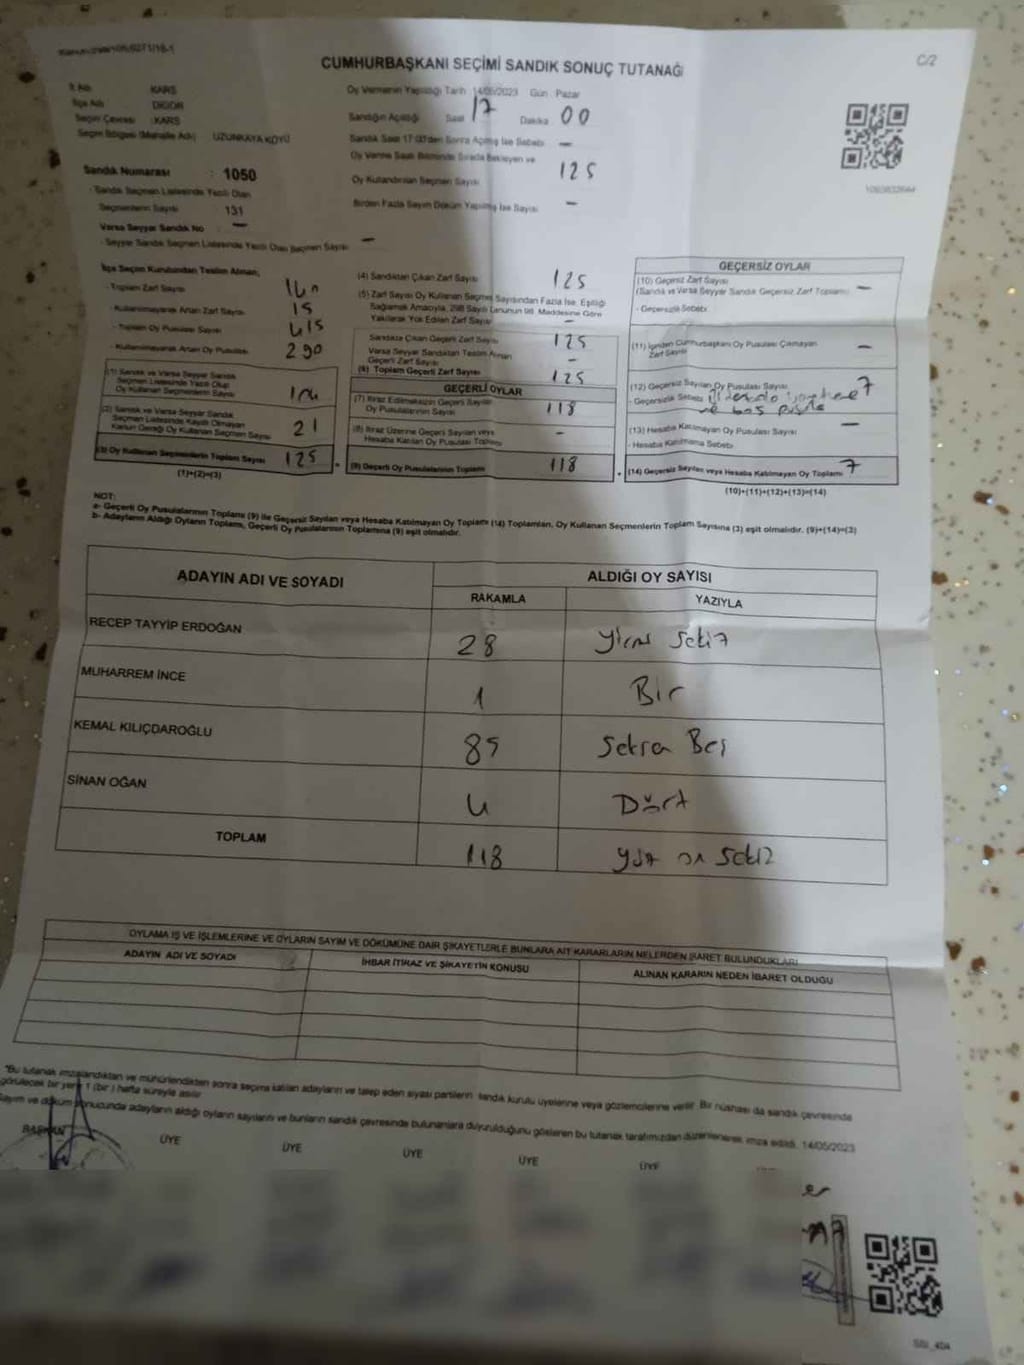 C/2
CUMHURBAŞKANI SEÇİMİ SANDIK SONUÇ TUTANAĞI
İl Adı KARS
İlçe Adı DİGOR
Seçim Çevresi : KARS
Seçim Bölgesi (Mahalle Adı) UZUNKAYA KÖYÜ
Sandık Numarası : 1050
- Sandık Seçmen Listesinde Yazılı Olan
Seçmenlerin Sayısı 131
Varsa Seyyar Sandık No –
- Seyyar Sandık Seçmen Listesinde Yazılı Olan Seçmen Sayısı –
Oy Vermenin Yapıldığı Tarih 14/05/2023 Gün : Pazar
Sandığın Açıldığı Saat 17 Dakika 00
Sandık Saat 17:00'den Sonra Açılmış İse Sebebi –
Oy Verme Saati Bitiminde Sırada Bekleyen ve
Oy Kullandırılan Seçmen Sayısı 125
Birden Fazla Sayım Döküm Yapılmış İse Sayısı –
İlçe Seçim Kurulundan Teslim Alınan;
- Toplam Zarf Sayısı
- Kullanılmayarak Artan Zarf Sayısı 15
- Toplam Oy Pusulası Sayısı 415
- Kullanılmayarak Artan Oy Pusulası 290
(1) Sandık ve Varsa Seyyar Sandık
Seçmen Listesinde Yazılı Olup
Oy Kullanan Seçmenlerin Sayısı
(2) Sandık ve Varsa Seyyar Sandık
Seçmen Listesinde Kayıtlı Olmayan
Kanun Gereği Oy Kullanan Seçmen Sayısı 21
(3) Oy Kullanan Seçmenlerin Toplam Sayısı 125
(1)+(2)=(3)
(4) Sandıktan Çıkan Zarf Sayısı 125
(5) Zarf Sayısı Oy Kullanan Seçmen Sayısından Fazla İse, Eşitliği
Sağlamak Amacıyla, 298 Sayılı Kanunun 98. Maddesine Göre
Yakılarak Yok Edilen Zarf Sayısı –
Sandıkta Çıkan Geçerli Zarf Sayısı 125
Varsa Seyyar Sandıktan Teslim Alınan
Geçerli Zarf Sayısı –
(6) Toplam Geçerli Zarf Sayısı 125
GEÇERLİ OYLAR
(7) İtiraz Edilmeksizin Geçerli Sayılan
Oy Pusulalarının Sayısı 118
(8) İtiraz Üzerine Geçerli Sayılan veya
Hesaba Katılan Oy Pusulası Toplamı –
(9) Geçerli Oy Pusulalarının Toplamı 118
GEÇERSİZ OYLAR
(10) Geçersiz Zarf Sayısı
(Sandık ve Varsa Seyyar Sandık Geçersiz Zarf Toplamı) –
- Geçersizlik Sebebi:
(11) İçinden Cumhurbaşkanı Oy Pusulası Çıkmayan
Zarf Sayısı –
(12) Geçersiz Sayılan Oy Pusulası Sayısı 7
- Geçersizlik Sebebi
ve boş pusula
(13) Hesaba Katılmayan Oy Pusulası Sayısı –
- Hesaba Katılmama Sebebi
(14) Geçersiz Sayılan veya Hesaba Katılmayan Oy Toplamı 7
(10)+(11)+(12)+(13)=(14)
NOT:
a- Geçerli Oy Pusulalarının Toplamı (9) ile Geçersiz Sayılan veya Hesaba Katılmayan Oy Toplamı (14) Toplamları, Oy Kullanan Seçmenlerin Toplam Sayısına (3) eşit olmalıdır. (9)+(14)=(3)
b- Adayların Aldığı Oyların Toplamı, Geçerli Oy Pusulalarının Toplamına (9) eşit olmalıdır.
ADAYIN ADI VE SOYADI ALDIĞI OY SAYISI
RAKAMLA YAZIYLA
RECEP TAYYİP ERDOĞAN 28 Yirmi Sekiz
MUHARREM İNCE 1 Bir
KEMAL KILIÇDAROĞLU 85 Seksen Beş
SİNAN OĞAN 4 Dört
TOPLAM 118 Yüz on Sekiz
OYLAMA İŞ VE İŞLEMLERİNE VE OYLARIN SAYIM VE DÖKÜMÜNE DAİR ŞİKAYETLERLE BUNLARA AİT KARARLARIN NELERDEN İBARET BULUNDUKLARI
ADAYIN ADI VE SOYADI İHBAR İTİRAZ VE ŞİKAYETİN KONUSU ALINAN KARARIN NEDEN İBARET OLDUĞU
"Bu tutanak imzalandıktan ve mühürlendikten sonra seçime katılan adayların ve talep eden siyasi partilerin sandık kurulu üyelerine veya gözlemcilerine verilir. Bir nüshası da sandık çevresinde
görülecek bir yere 1 (bir) hafta süreyle asılır
Sayım ve döküm sonucunda adayların aldığı oyların sayılarını ve bunların sandık çevresinde bulunanlara duyurulduğunu gösteren bu tutanak tarafımızdan düzenlenerek imza edildi. 14/05/2023
BAŞKAN ÜYE ÜYE ÜYE ÜYE ÜYE